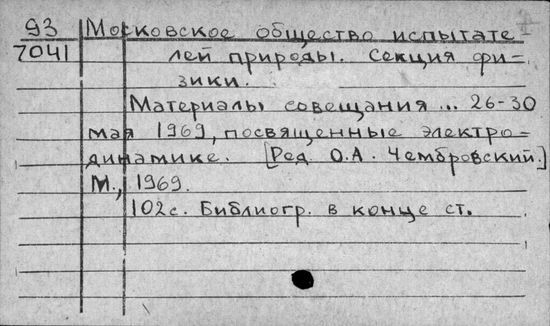 93
7041
Московское общество испытате
лей природы. Секция фи-
зики.
Материалы совещания ... 26-30
мая 1969, посвященные электро-
динамике. [Ред. О.А. Чембровский.]
М., 1969.
102с. Библиогр. в конце ст.